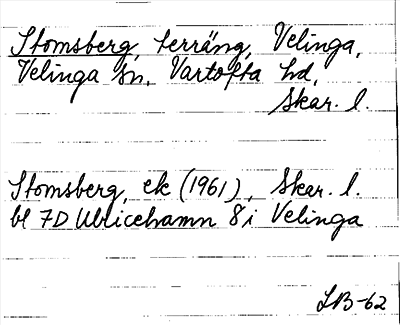 Stomsberg, terräng, Velinga,
Velinga sn, Vartofta hd,
Skar. l.
Stomsberg, ek (1961), Skar. l.
bl 7D Ulricehamn 8i Velinga
LB-62